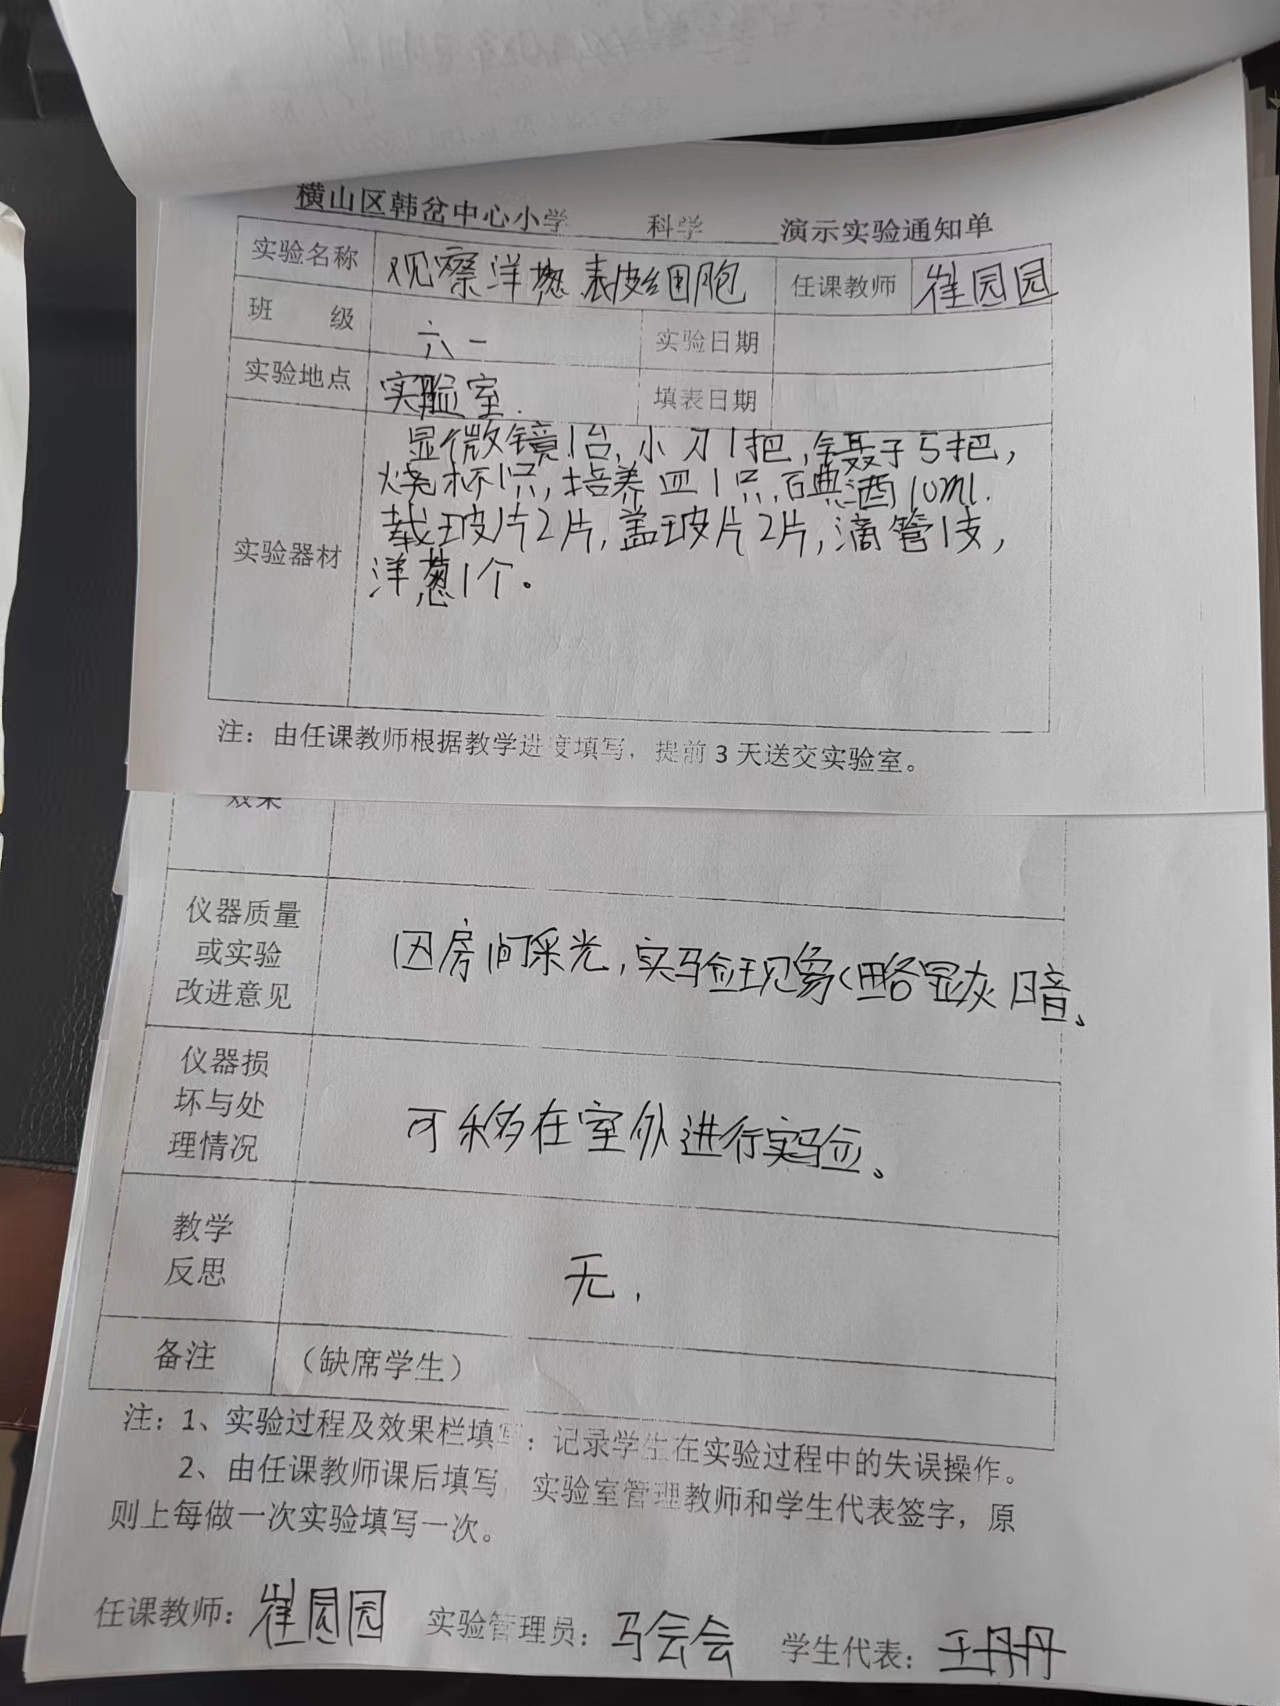 横山区韩岔中心小学 科学 演示实验通知单
实验名称 观察洋葱表皮细胞 任课教师 崔园园
班 级 六一 实验日期
实验地点 实验室. 填表日期
实验器材
显微镜1台,小刀1把,镊子5把,
烧杯1只,培养皿1只,碘酒10ml.
载玻片2片,盖玻片2片,滴管1支,
洋葱1个。
注：由任课教师根据教学进度填写，提前3天送交实验室。
效果
仪器质量
或实验
改进意见
因房间采光,实验现象略显灰暗、
仪器损
坏与处
理情况
可移在室外进行实验。
教学
反思
无,
备注 （缺席学生）
注：1、实验过程及效果栏填写：记录学生在实验过程中的失误操作。
2、由任课教师课后填写，实验室管理教师和学生代表签字，原
则上每做一次实验填写一次。
任课教师：崔园园 实验管理员：马会会 学生代表：王丹丹